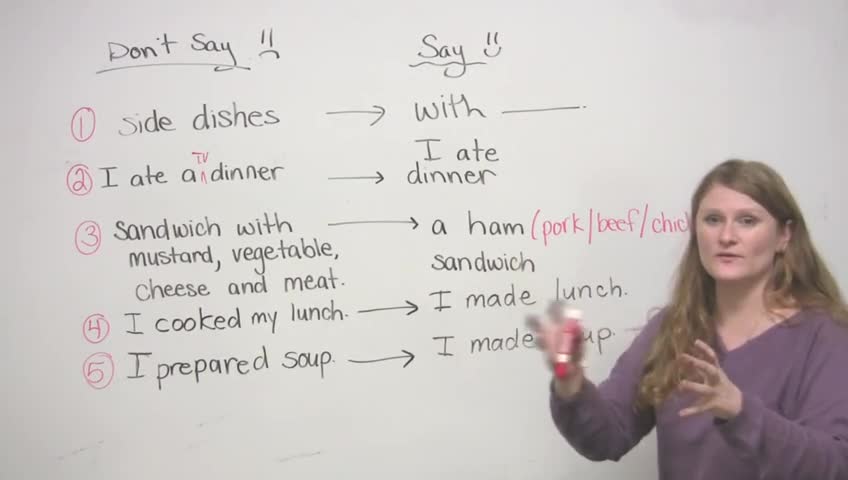 Don't Say
Say
① side dishes → with ______.
② I ate a TV dinner → I ate dinner
③ Sandwich with mustard, vegetable, cheese and meat. → a ham (pork/beef/
sandwich
④ I cooked my lunch. → I made lunch.
⑤ I prepared soup. → I made